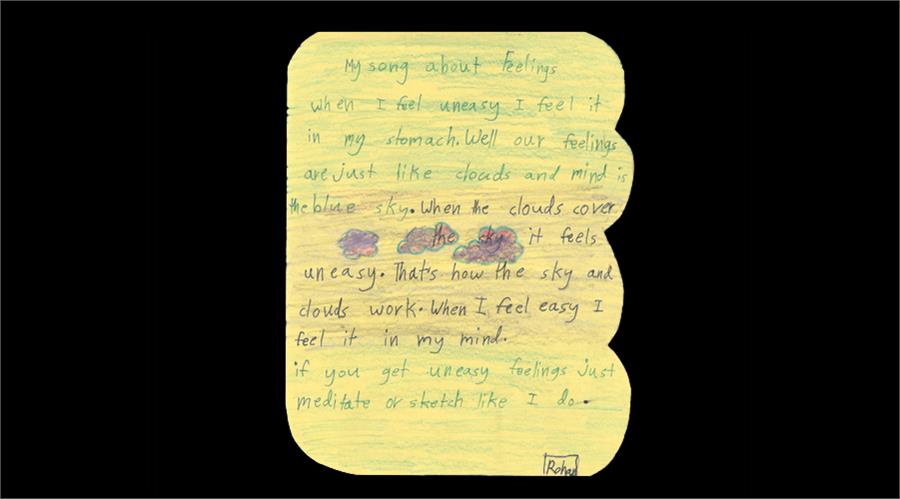 My song about Feelings
when I feel uneasy I feel it
in my stomach. Well our feelings
are just like clouds and mind is
the blue sky. When the clouds cover
the sky it feels
uneasy. That's how the sky and
clouds work. When I feel easy I
feel it in my mind.
if you get uneasy feelings just
meditate or sketch like I do.
Rohan